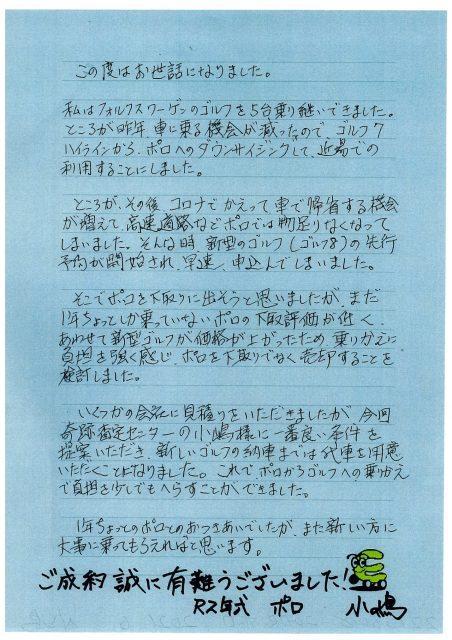 この度はお世話になりました。
私はフォルクスワーゲンのゴルフを5台乗り継いできました。
ところが昨年 車に乗る機会が減ったので、ゴルフ7
ハイラインから、ポロへのダウンサイジングして、近場での
利用することにしました。
ところが、その後、コロナで かえって車で帰省する機会
が増えて、高速道路などポロでは物足りなくなって
しまいました。そんな時 新型のゴルフ(ゴルフ8)の先行
予約が開始され、早速、申込んでしまいました。
そこでポロを下取りに出そうと思いましたが、まだ
1年ちょっとしか乗っていないポロの下取評価が低く、
あわせて新型ゴルフが価格が上がったため、乗りかえに
負担を強く感じ、ポロを下取りでなく売却することを
検討しました。
いくつかの会社に見積りをいただきましたが、今回
奇跡査定センターの小嶋様に一番良い条件を
提案いただき、新しいゴルフの納車までは代車を用意
いただくことになりました。これで、ポロからゴルフへの乗かえ
で負担を少しでもへらすことができました。
1年ちょっとのポロとのおつきあいでしたが、また新しい方に
大事に乗ってもらえればと思います。
ご成約 誠に有難うございました!
R2年式 ポロ 小嶋